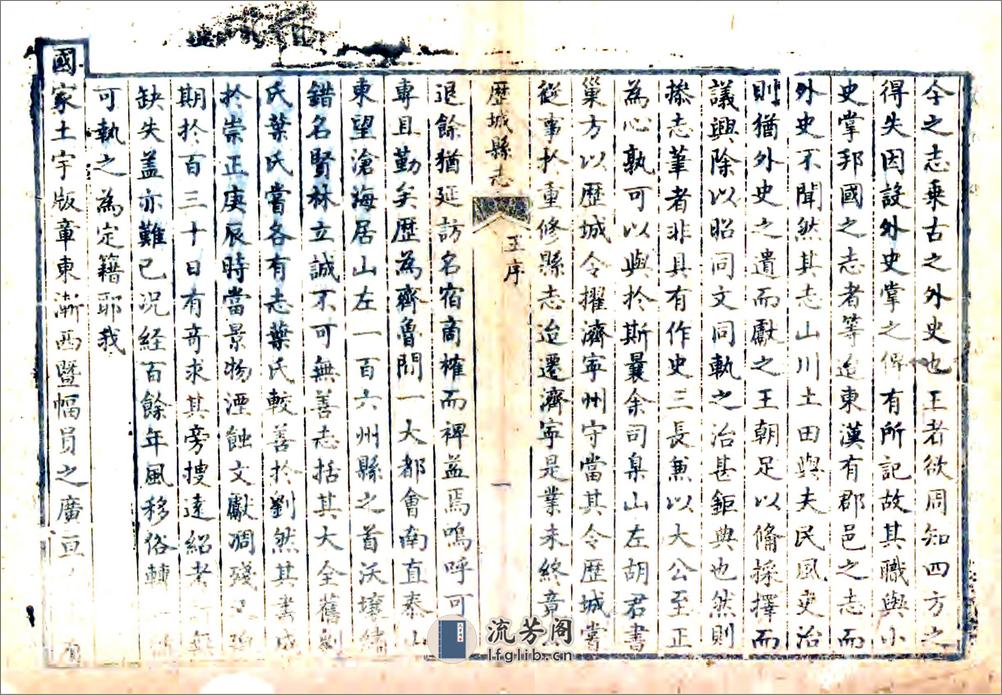 今之志乘古之外史也王者欲周知四方之
得失因設外史掌之俾有所記故其職與小
史掌邦國之志者等迨東漢有郡邑之志而
外史不聞然其志山川土田與夫民風吏治
則猶外史之遺而獻之王朝足以備採擇而
議興除以昭同文同軌之治甚鉅典也然則
操志筆者非具有作史三長兼以大公至正
為心孰可以與於斯曩余司臬山左胡君書
巢方以歷城令擢濟寧州守當其令歷城嘗
從事於重修縣志迨遷濟寧是業未終章
歷城縣志
王序
一
退餘猶延訪名宿商榷而裨益焉嗚呼可
專且勤矣歷為齊魯間一大都會南直泰山
東望滄海居山左一百六州縣之首沃壤繡
錯名賢林立誠不可無善志括其大全舊劉
氏葉氏嘗各有志葉氏較善於劉然其書成
於崇正庚辰時當景物湮蝕文獻凋殘
期於百三十日有奇求其旁搜遠紹者
缺失蓋亦難已況經百餘年風移俗轉
可執之為定籍耶我
國家土宇版章東漸西暨幅員之廣亘
流芳閣
lfglib.cn